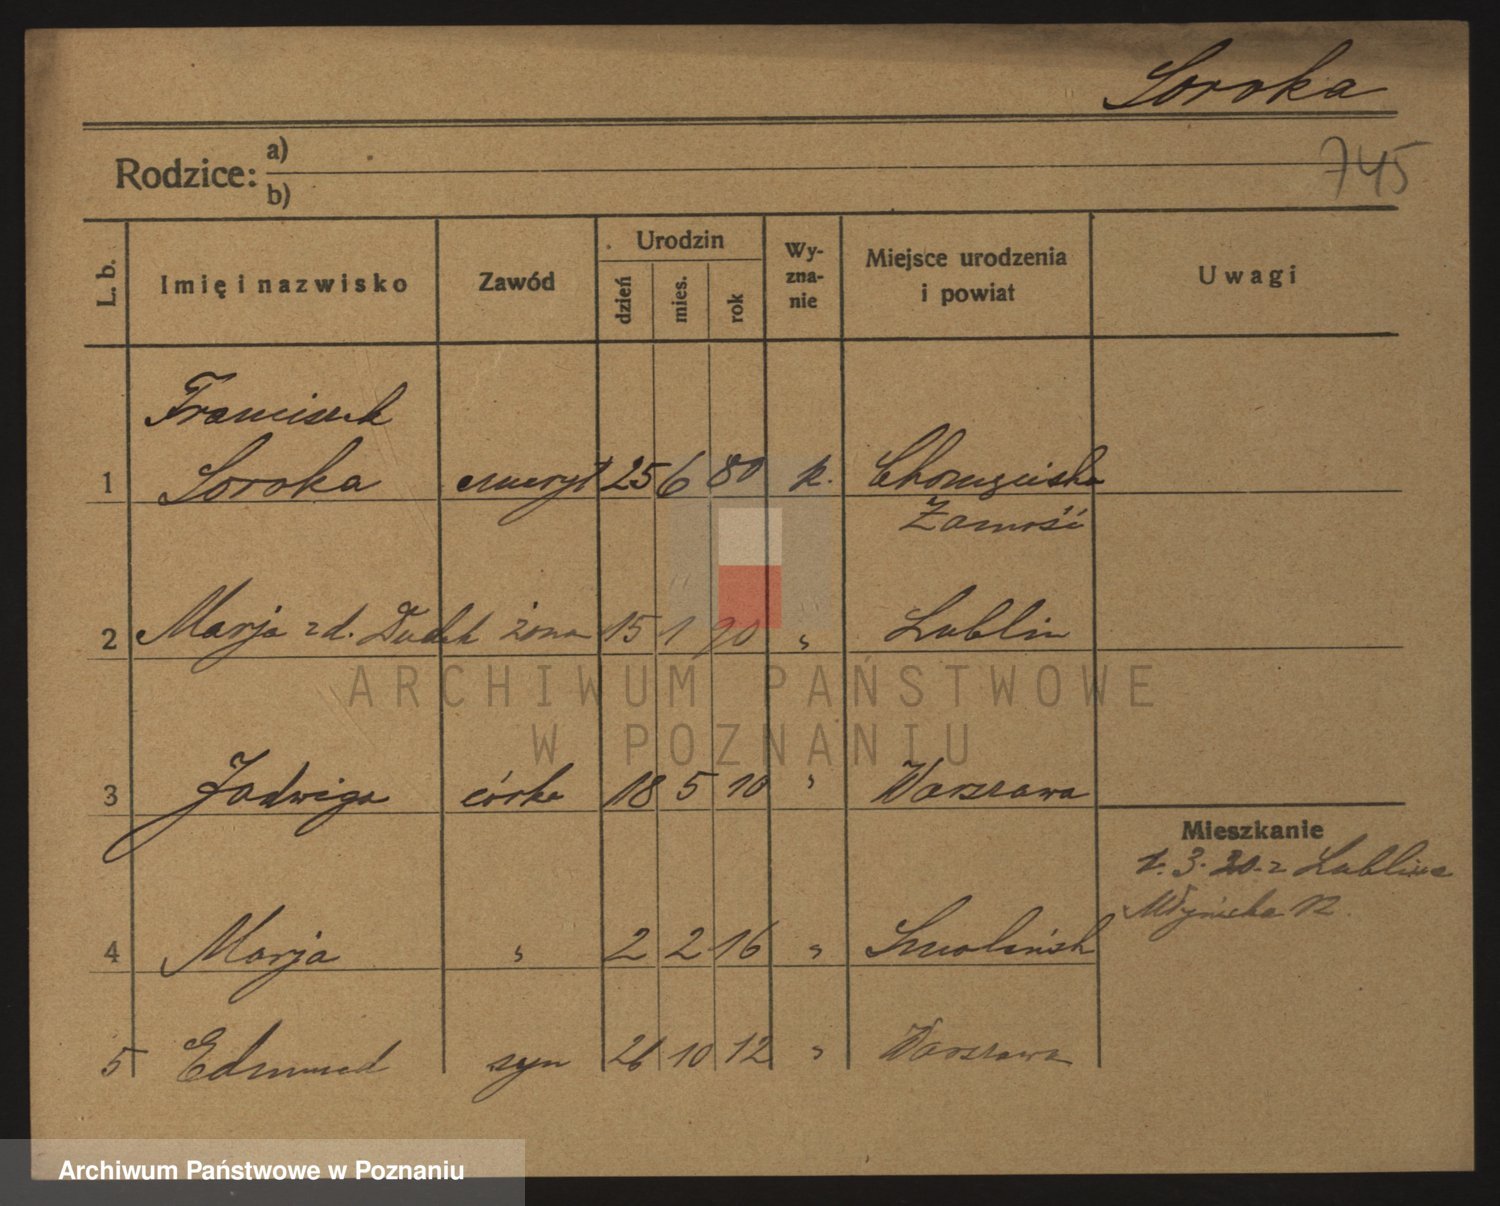 Soroka
745
Rodzice: a)
b)
L. b. Imię i nazwisko Zawód Urodzin dzień mies. rok Wy-zna-nie Miejsce urodzenia i powiat Uwagi
Franciszek
1 Soroka emeryt 25 6 80 k.
Zamość
2 Marja zd. Dudek żona 15 1 90 " Lublin
ARCHIWUM PAŃSTWOWE
W POZNANIU
3 Jadwiga córka 18 5 10 " Warszawa
Mieszkanie
1. 3. 30. z Lublina
4 Marja " 2 2 16 " Smoleńsk
12
5 Edmund syn 26 10 12 " Warszawa
Archiwum Państwowe w Poznaniu